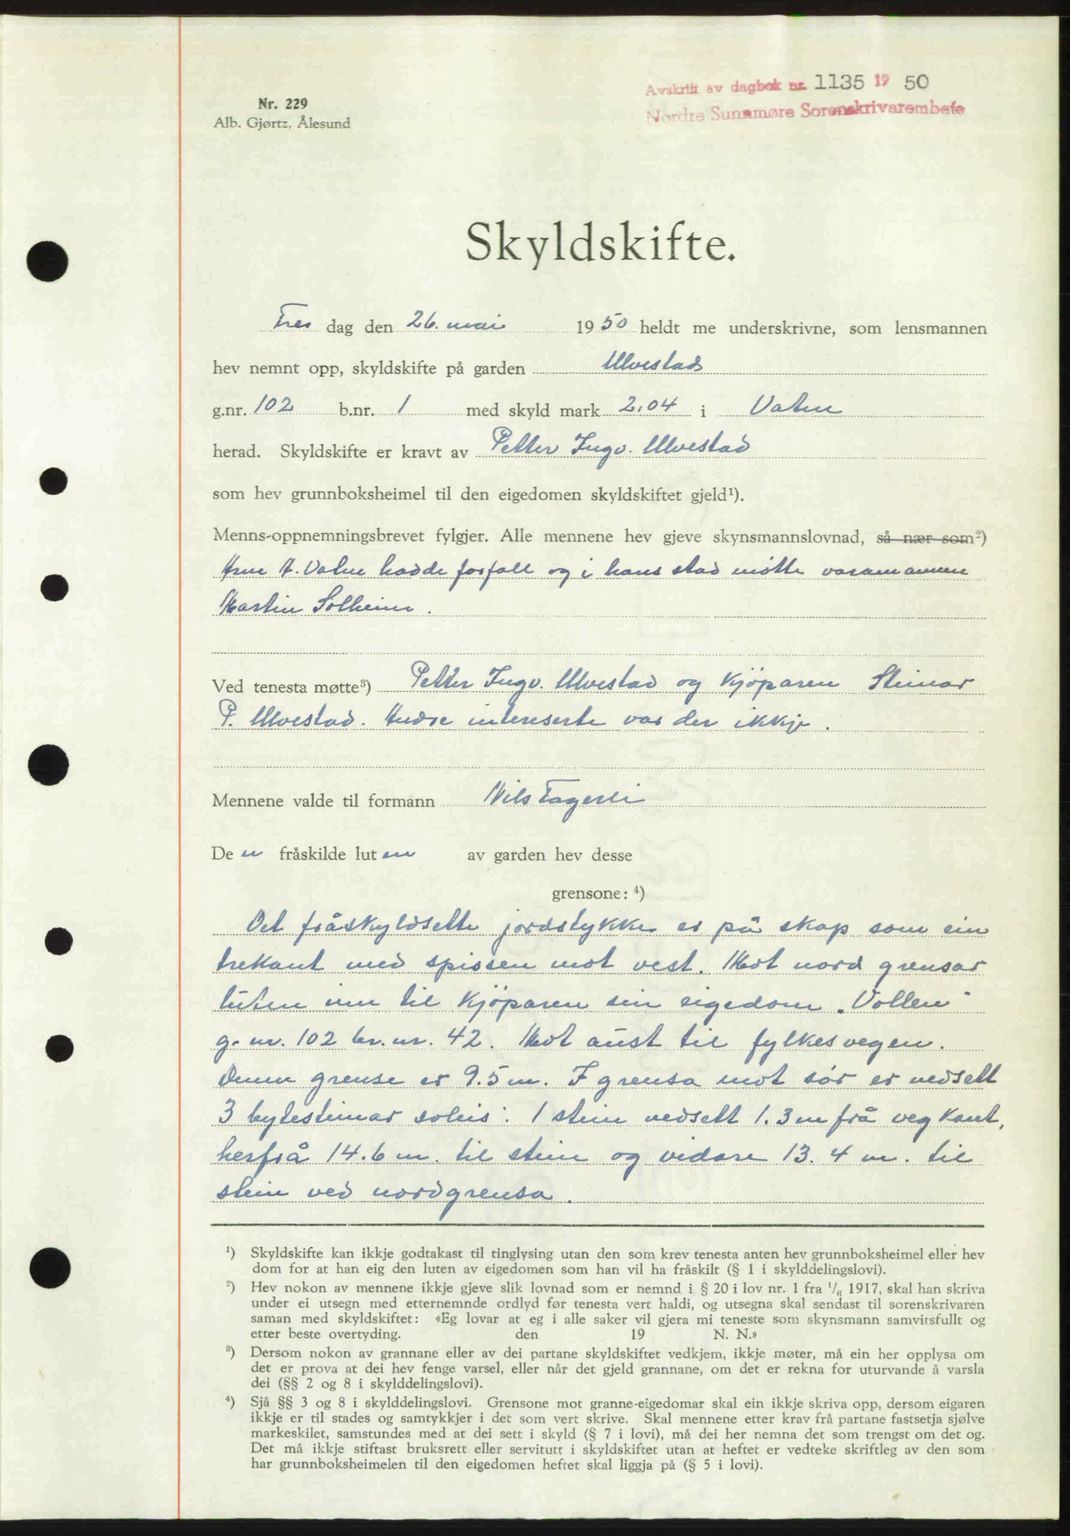 Avskrift av dagbok nr. 1135 19 50
Nordre Sunnmøre Sorenskrivarembete
Nr. 229
Alb. Gjørtz, Ålesund
Skyldskifte.
Fre dag den 26. mai 1950 heldt me underskrivne, som lensmannen
hev nemnt opp, skyldskifte på garden Ulvestad
g.nr. 102 b.nr. 1 med skyld mark 2.04 i Vatne
herad. Skyldskifte er kravt av Petter Ingv. Ulvestad
som hev grunnboksheimel til den eigedomen skyldskiftet gjeld¹).
Menns-oppnemningsbrevet fylgjer. Alle mennene hev gjeve skynsmannslovnad, så nær som²)
A. Vatne hadde forfall og i hans stad møtte varamannen
Martin Solheim.
Ved tenesta møtte³) Petter Ingv. Ulvestad og kjöparen Steinar
P. Ulvestad. Andre intereserte var der ikkje.
Mennene valde til formann Nils Fagerli
De n fråskilde luten av garden hev desse
grensone: ⁴)
Det fråskyldsette jordstykke er på skap som ein
trekant med spissen mot vest. Mot nord grensar
luten inn til kjöparen sin eigedom "Vollen"
g. nr. 102 br. nr. 42. Mot aust til fylkesvegen.
Denne grense er 9.5 m. I grensa mot sör er nedsett
3 bytesteinar soleis: 1 stein nedsett 1.3 m frå vegkant,
herfrå 14.6 m. til stein og vidare 13.4 m. til
stein ved nordgrensa.
¹) Skyldskifte kan ikkje godtakast til tinglysing utan den som krev tenesta anten hev grunnboksheimel eller hev
dom for at han eig den luten av eigedomen som han vil ha fråskilt (§ 1 i skylddelingslovi).
²) Hev nokon av mennene ikkje gjeve slik lovnad som er nemnd i § 20 i lov nr. 1 fra ¹/₆ 1917, skal han skriva
under ei utsegn med etternemnde ordlyd før tenesta vert haldi, og utsegna skal sendast til sorenskrivaren
saman med skyldskiftet: «Eg lovar at eg i alle saker vil gjera mi teneste som skynsmann samvitsfullt og
etter beste overtyding. den 19 N. N.»
³) Dersom nokon av grannane eller av dei partane skyldskiftet vedkjem, ikkje møter, må ein her opplysa om
det er prova at dei hev fenge varsel, eller når det gjeld grannane, om det er rekna for uturvande å varsla
dei (§§ 2 og 8 i skylddelingslovi).
⁴) Sjå §§ 3 og 8 i skylddelingslovi. Grensone mot granne-eigedomar skal ein ikkje skriva opp, dersom eigaren
ikkje er til stades og samtykkjer i det som vert skrive. Skal mennene etter krav frå partane fastsetja sjølve
markeskilet, samstundes med at dei sett i skyld (§ 7 i lovi), må dei her nemna det som trengst om det og.
Det må ikkje stiftast bruksrett eller servitutt i skyldskiftet utan at heftet er vedteke skriftleg av den som
har grunnboksheimelen til den eigedomen heftet skal liggja på (§ 5 i lovi).